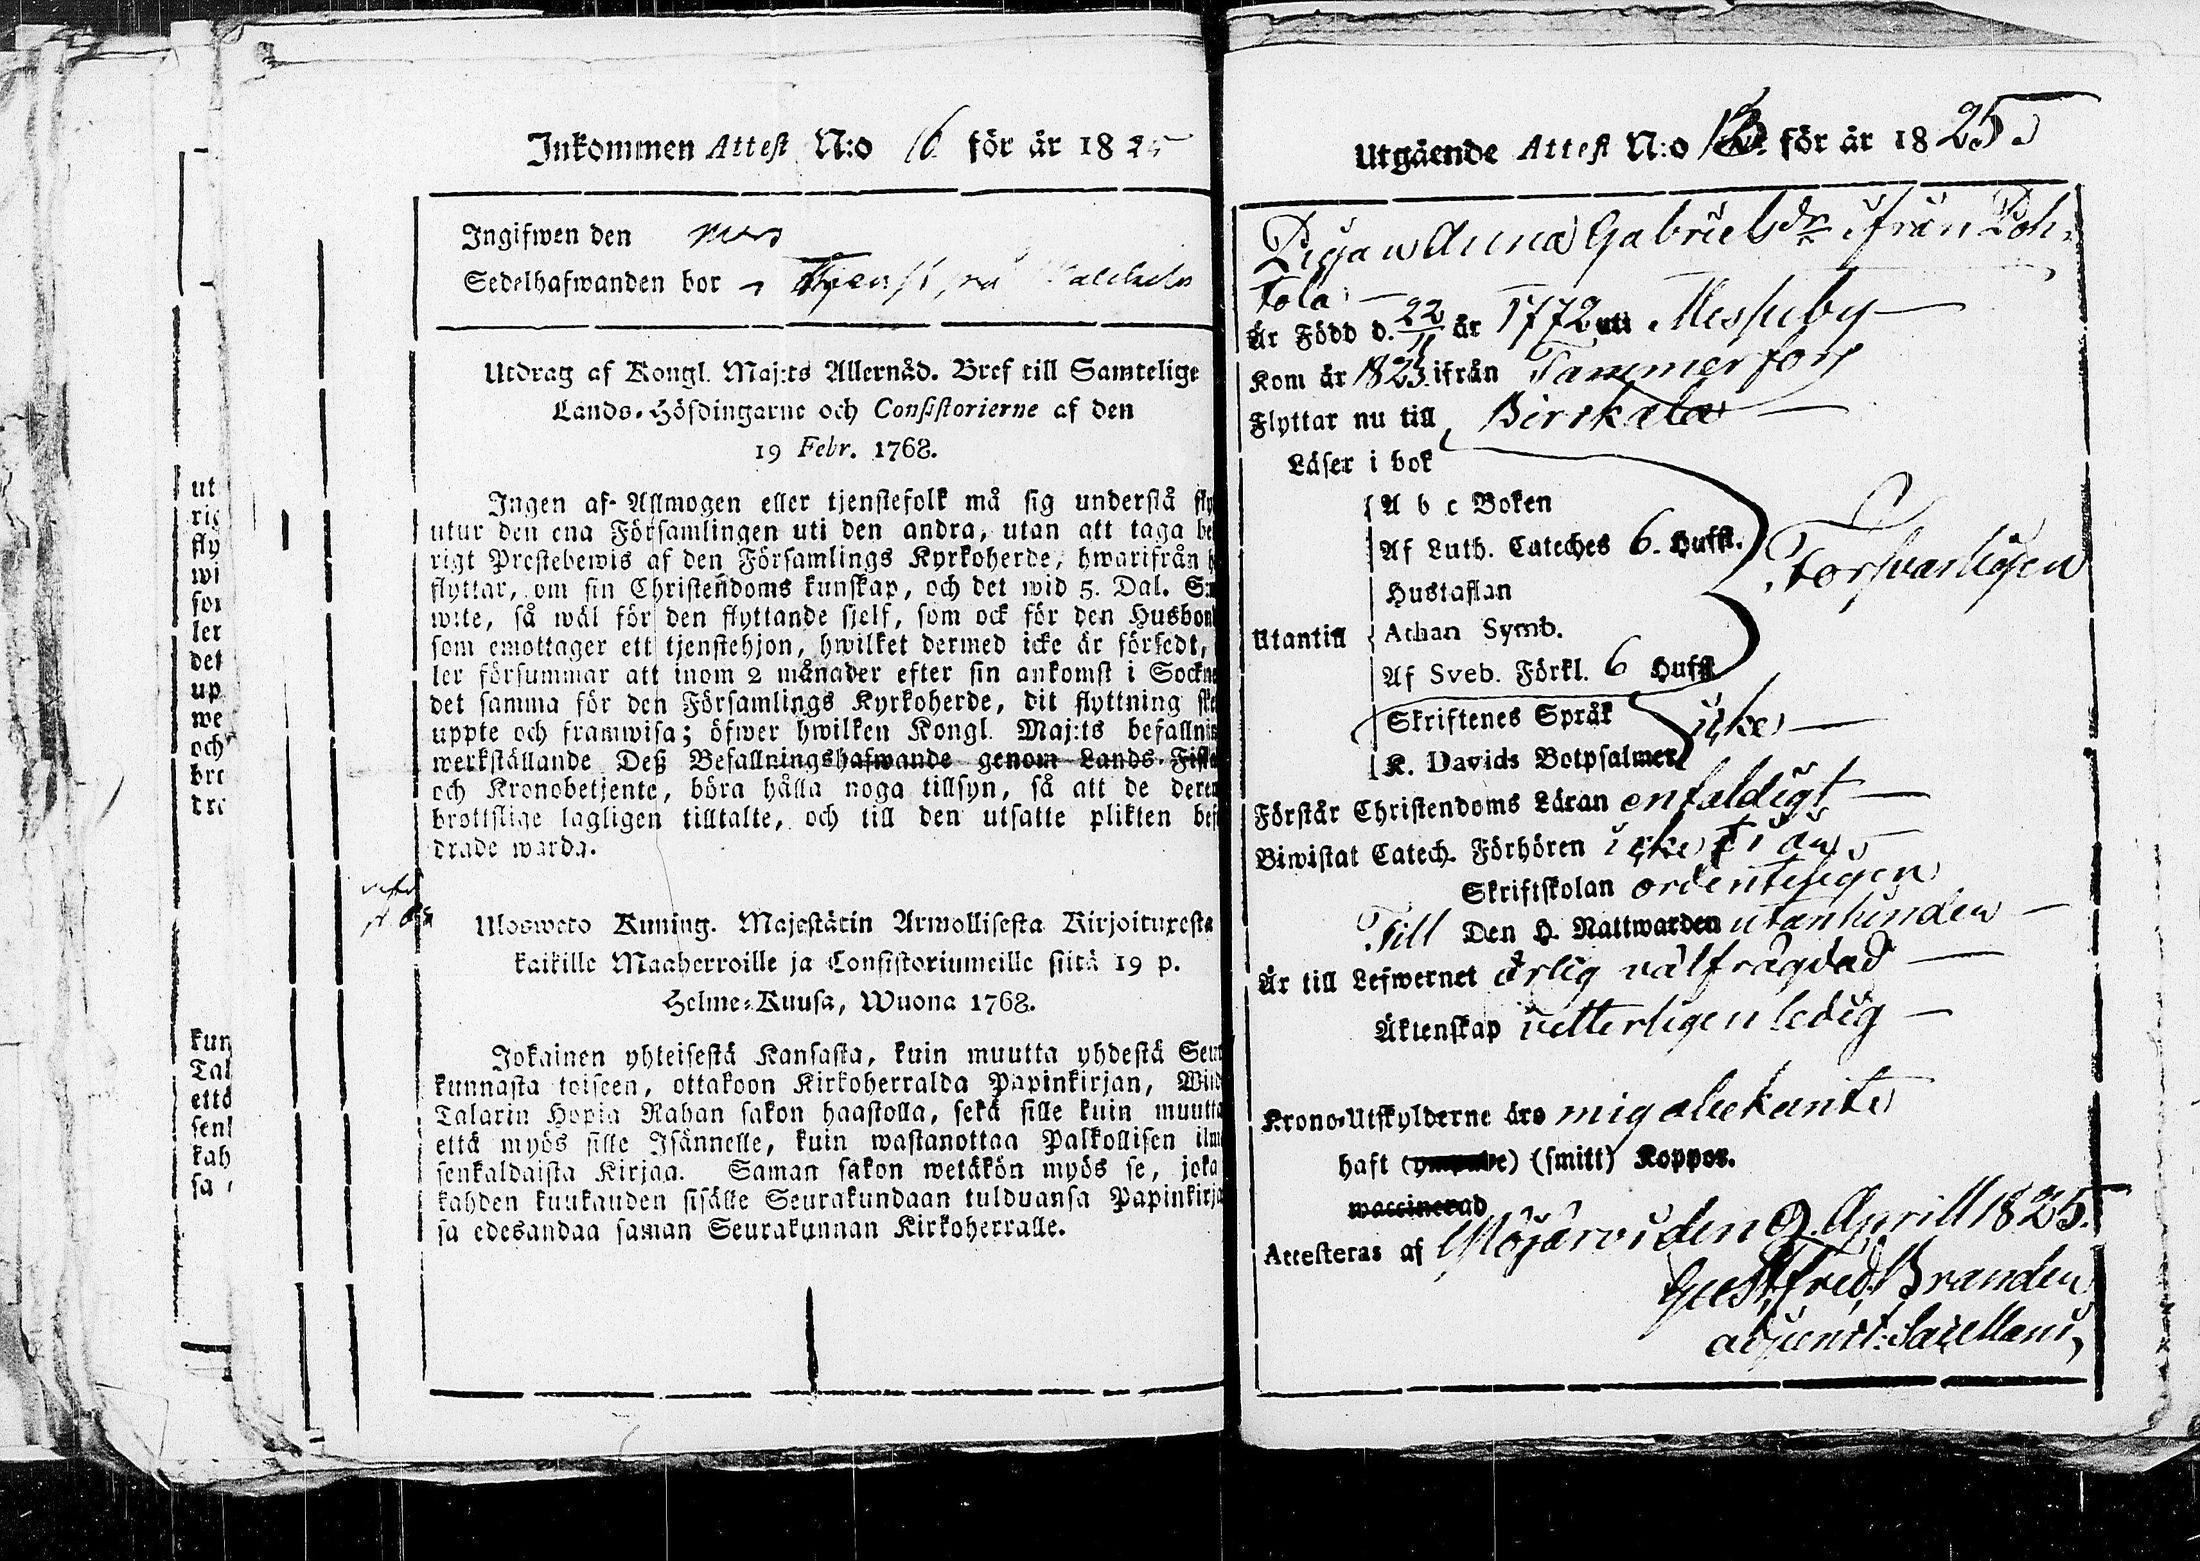 Inkommen Attest N:o 16. för år 1825
Ingifwen den
Sedelhafwanden bor i Tjenst på
Utdrag af Kongl. Maj:ts Allernåd. Bref till Samtelige
Lands-Höfdingarne och Consistorierne af den
19 Febr. 1768.
Ingen af Allmogen eller tjenstefolk må sig understå
utur den ena Församlingen uti den andra, utan att taga
rigt Prestebewis af den Församlings Kyrkoherde, hwarifrån
flyttar, om sin Christendoms kunskap, och det wid 5. Dal.
wite, så wäl för den flyttande sjelf, som ock för den
som emottager ett tjenstehjon, hwilket dermed icke är försedt,
ler försummar att inom 2 månader efter sin ankomst i
det samma för den Församlings Kyrkoherde, dit flyttning
uppte och framwisa; öfwer hwilken Kongl. Maj:ts
werkställande Deß Befallningshafwande genom Lands-
och Kronobetjente, böra hålla noga tillsyn, så att de
brottslige lagligen tilltalte, och till den utsatte plikten
drade warda.
Ulosweto Kuning. Majestätin Armollisesta Kirjoituxesta
kaikille Maaherroille ja Consistoriumeille siitä 19 p.
Helme-Kuusa, Wuona 1768.
Jokainen yhteisestä Kansasta, kuin muutta yhdestä
kunnasta toiseen, ottakoon Kirkoherralda Papinkirjan,
Talarin Hopia Rahan sakon haastolla, sekä sille kuin
että myös sille Isännelle, kuin wastanottaa Palkollisen
senkaldaista Kirjaa. Saman sakon wetäkön myös se,
kahden kuukauden sisälle Seurakundaan tulduansa
sa edesandaa saman Seurakunnan Kirkoherralle.
ut
fly
wi
ler
det
up
we
och
kun
Tal
että
kah
sa
Utgående Attest N:o för år 1825
Pigan Anna Gabrielsdr ifrån Poh-
tola
Är Född d. 22/11 år 1772 uti Messuby
Kom år 1823 ifrån Tammerfors
Flyttar nu till Birckala
Läser i bok
Utantill
A b c Boken
Af Luth. Cateches 6. Hufst.
Hustaflan
Athan Symb.
Af Sveb. Förkl. 6 Hufst.
Försvarligen
Skriftenes Språk
K. Davids Botpsalmer
icke
Förstår Christendoms Läran enfaldigt
Biwistat Catech. Förhören icke i år
Skriftskolan ordenteligen
Till Den H. Nattwarden utan hinder
Är till Lefwernet ärlig välfrägdad
Äktenskap vetterligen ledig
Krono-Utskylderne äro mig obekante
haft (ympade) (smitt) Koppor.
waccinerad
Attesteras af Ylöjärvi den 9. Aprill 1825.
Gust. Fred. Brander
adjunct: Sacellani